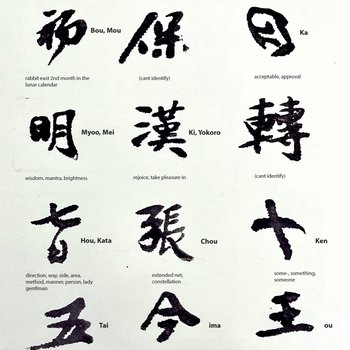 保
Bou, Mou
Ka
rabbit east 2nd month in the
lunar calendar
(cant identify)
acceptable, approval
明
Myoo, Mei
漢
Ki, Yokoro
轉
wisdom, mantra, brightness
rejoice, take pleasure in
(cant identify)
Hou, Kata
張
Chou
十
Ken
direction, way, side, area,
method, manner, person, lady
gentlman
extended net,
constellation
some-, something,
someone
五
Tai
今
ima
王
ou